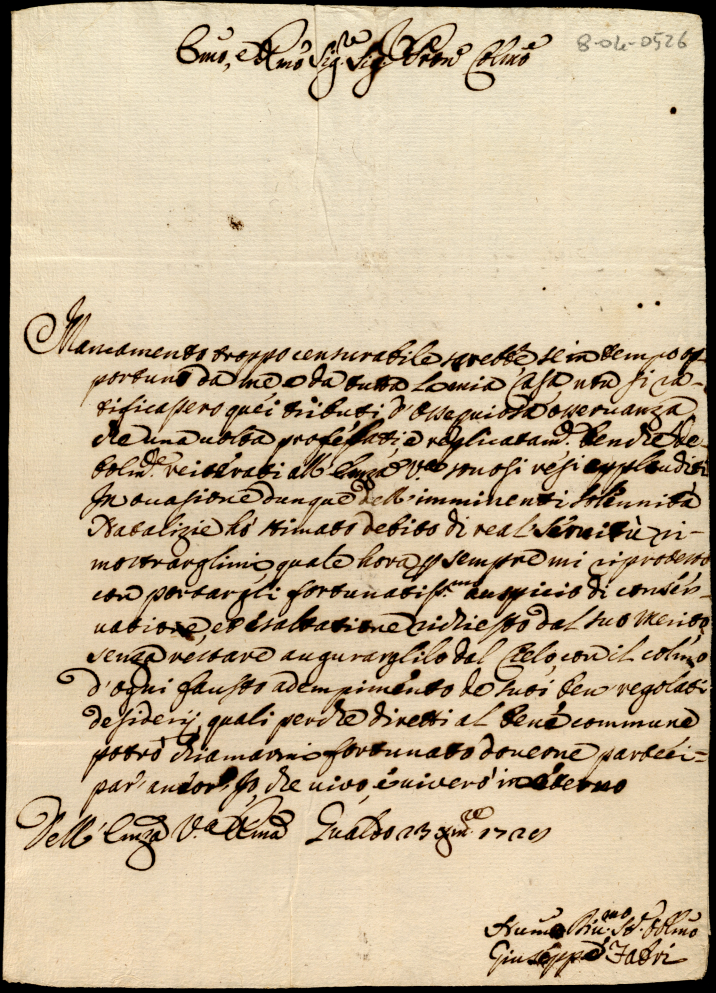 8-04-0526
Emo, e Rmo Sigre Sigr Pron Colmo
Mancamento troppo censurabile sarebbe se in tempo op-
portuno da me e da tutta la mia Casa non si ra-
tificassero quei tributi d'ossequiosa osservanza
che una volta professati, e replicatam.e benche de-
bolm.e reiterati all'Emza V.ra
In ocasione dunque dell'imminenti solennità
Natalizie hò stimato debito di real servitù ri-
mostrarglimi quale hora, e sempre mi riprotesto
con portargli fortunatiss.mo auspicio di conser-
vatione, et esaltatione richiesto dal suo merito
senza restare augurarglilo dal Cielo, con il colmo
d'ogni fausto adempimento de suoi ben regolati
desiderij, quali perche diretti al bene commune
potrò chiamarmi fortunato doverne parteci-
par' ancor' io, che vivo, e viverò in eterno
Dell'Emza V.a Rma Gualdo 23 Xmbre 172
Giuseppe